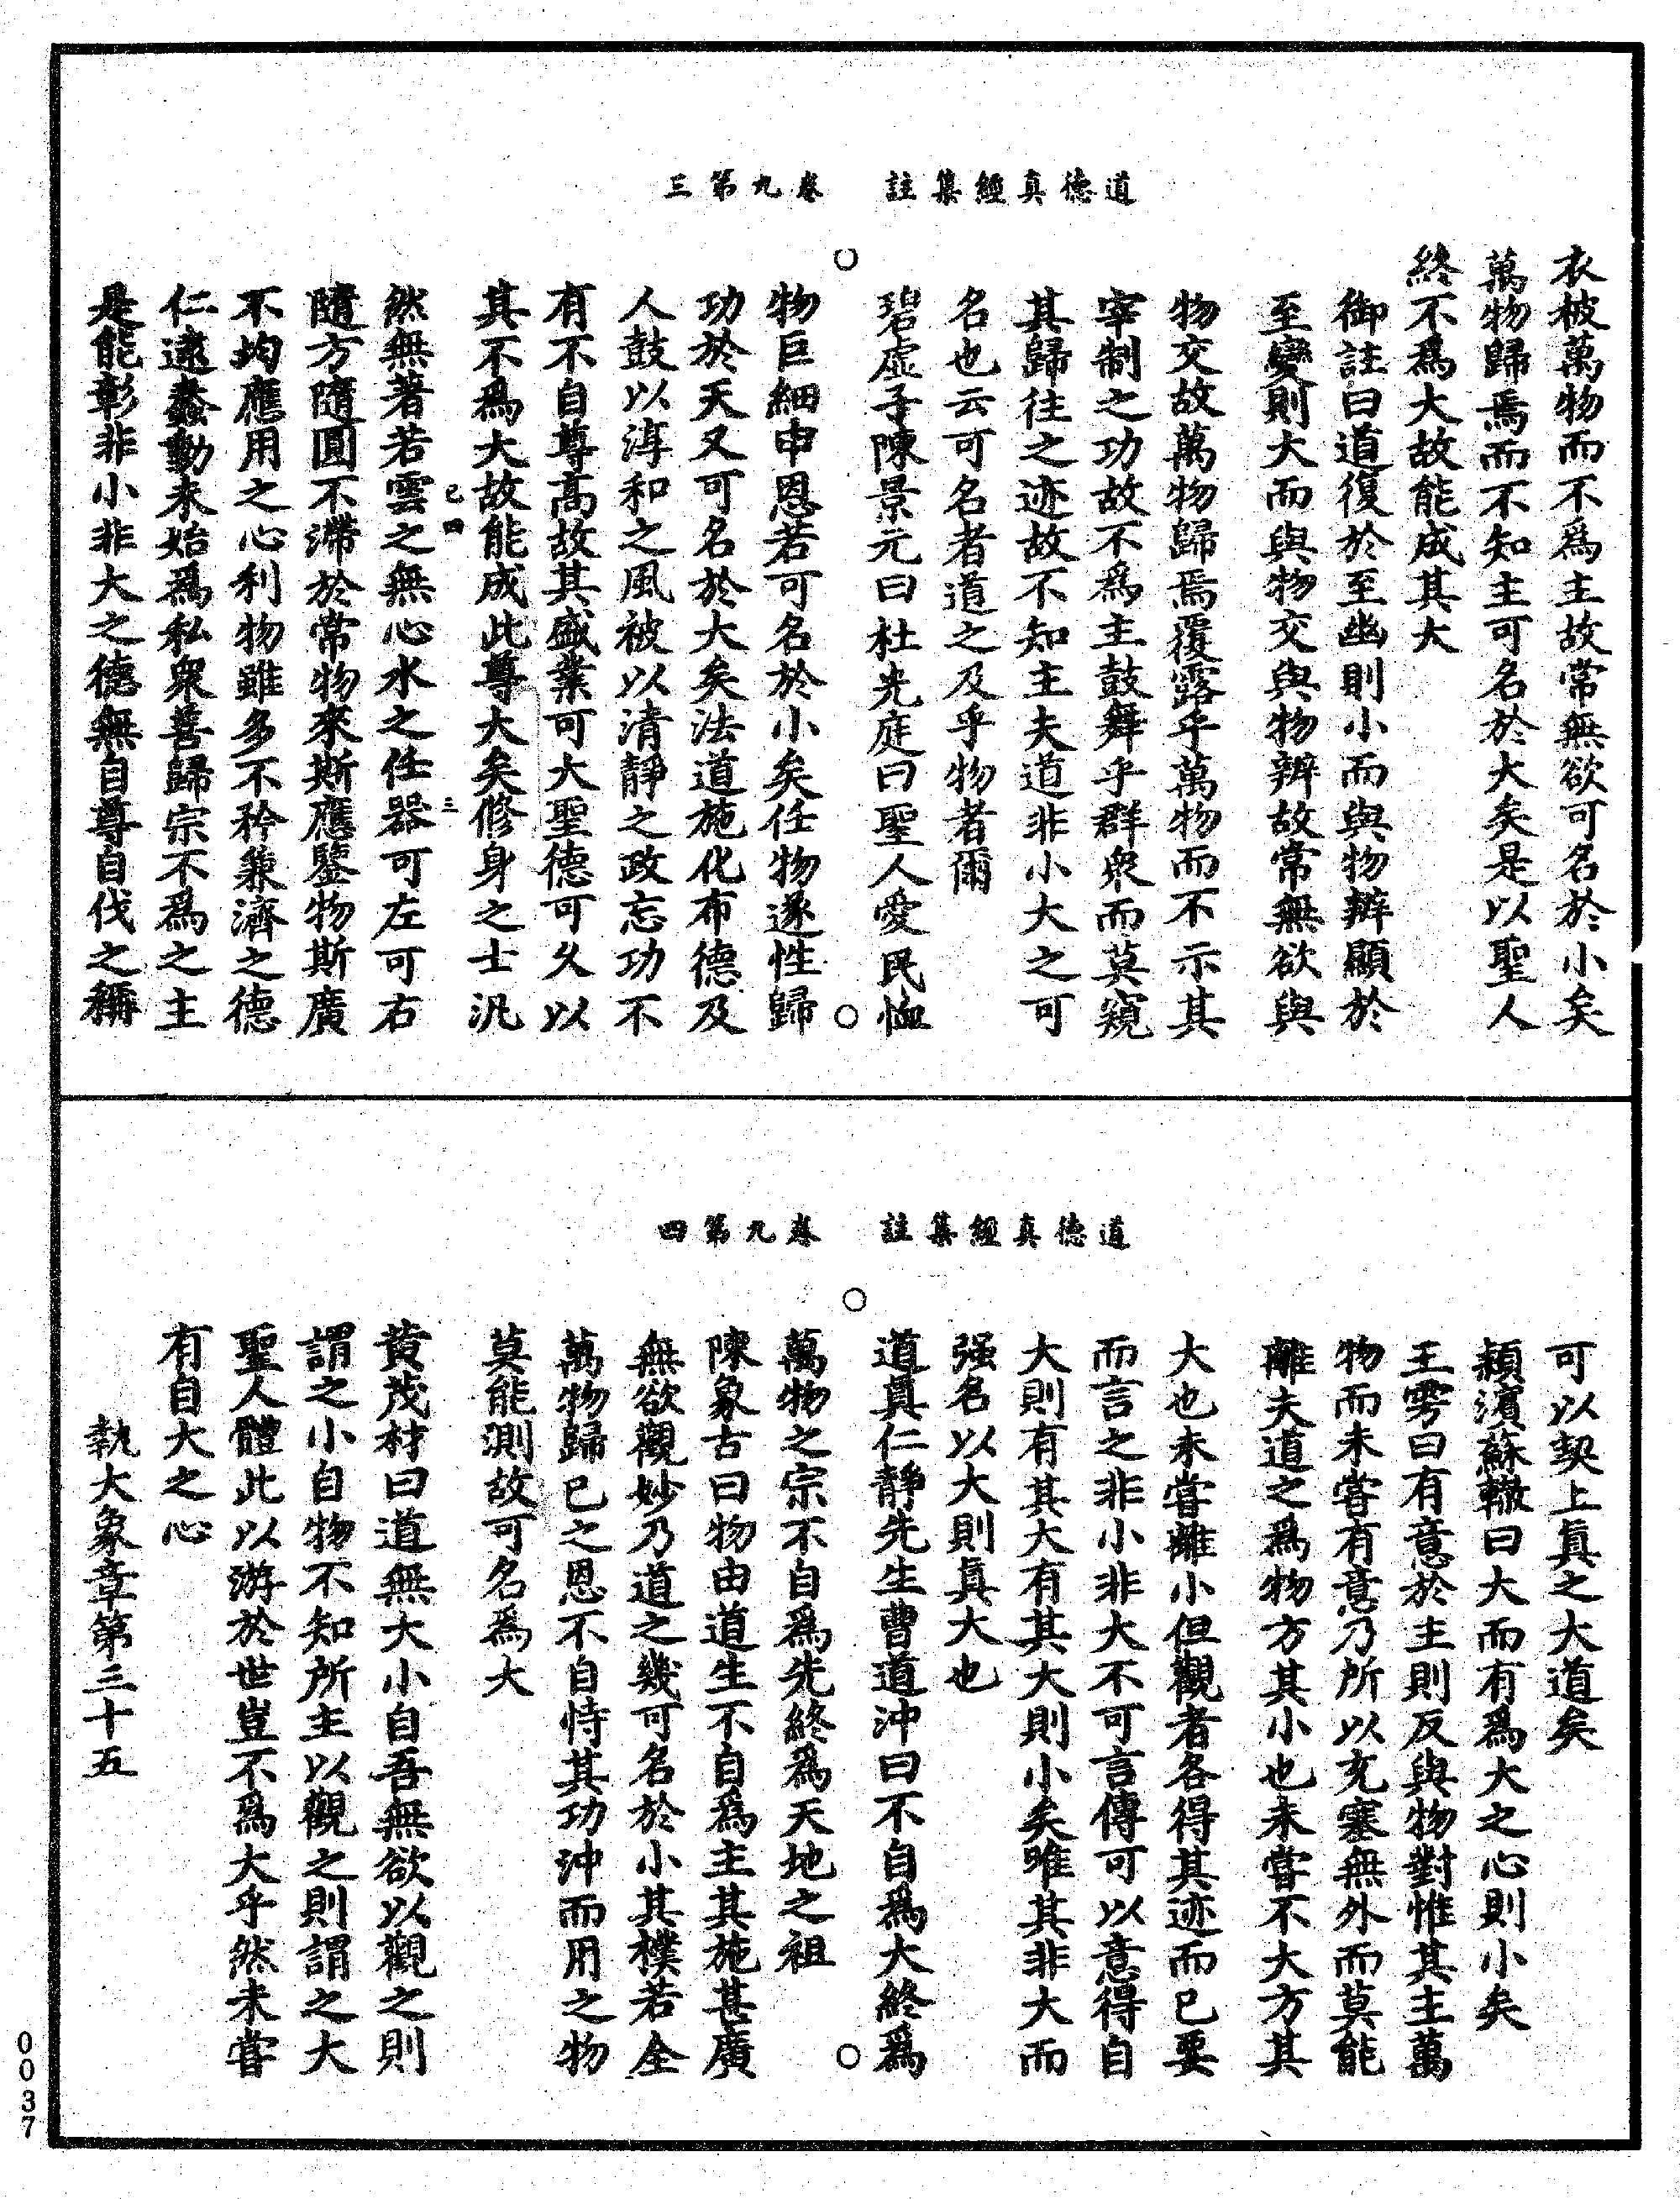 道德真經集註　卷九第三
衣被萬物而不爲主故常無欲可名於小矣
萬物歸焉而不知主可名於大矣是以聖人
終不爲大故能成其大
御註曰道復於至幽則小而與物辨顯於
至變則大而與物交與物辨故常無欲與
物交故萬物歸焉覆露乎萬物而不示其
宰制之功故不爲主鼓舞乎群衆而莫窺
其歸往之迹故不知主夫道非小大之可
名也云可名者道之及乎物者爾
碧虛子陳景元曰杜光庭曰聖人愛民恤
物巨細申恩若可名於小矣任物遂性歸
功於天又可名於大矣法道施化布德及
人鼓以淳和之風被以清靜之政忘功不
有不自尊高故其盛業可大聖德可久以
其不爲大故能成此尊大矣修身之士汎
已四　三
然無著若雲之無心水之任器可左可右
隨方隨圓不滯於常物來斯應鑒物斯廣
不均應用之心利物雖多不矜兼濟之德
仁逮蠢動未始爲私衆善歸宗不爲之主
是能彰非小非大之德無自尊自伐之稱
道德真經集註　卷九第四
可以契上真之大道矣
穎濱蘇轍曰大而有爲大之心則小矣
王雱曰有意於主則反與物對惟其主萬
物而未嘗有意乃所以充塞無外而莫能
離夫道之爲物方其小也未嘗不大方其
大也未嘗離小但觀者各得其迹而已要
而言之非小非大不可言傳可以意得自
大則有其大有其大則小矣唯其非大而
强名以大則真大也
道真仁靜先生曹道沖曰不自爲大終爲
萬物之宗不自爲先終爲天地之祖
陳象古曰物由道生不自爲主其施甚廣
無欲觀妙乃道之幾可名於小其樸若全
萬物歸已之恩不自恃其功沖而用之物
莫能測故可名爲大
黄茂材曰道無大小自吾無欲以觀之則
謂之小自物不知所主以觀之則謂之大
聖人體此以游於世豈不爲大乎然未嘗
有自大之心
執大象章第三十五
0037